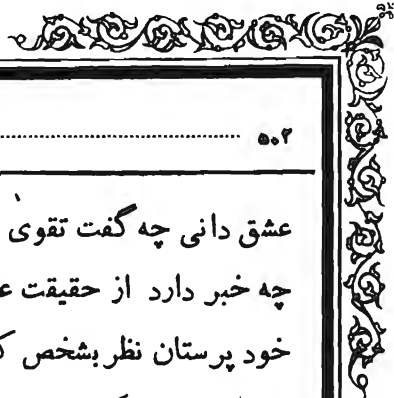 ۵۰۲
عشق دانی چه گفت تقوی
چه خبر دارد از حقیقت
خود پرستان نظر بشخص